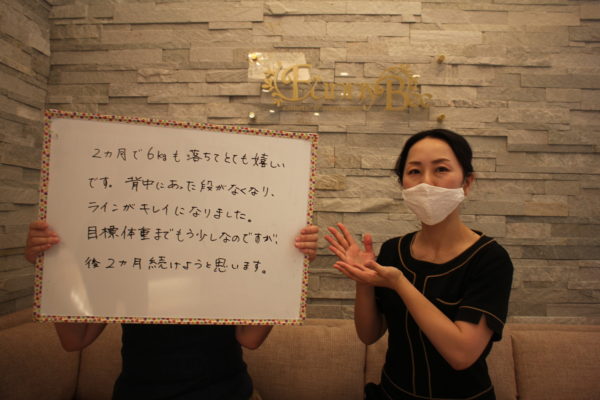 2ヵ月で6kgも落ちてとても嬉しい
です。背中にあった段がなくなり、
ラインがキレイになりました。
目標体重までもう少しなのですが、
後2ヵ月続けようと思います。